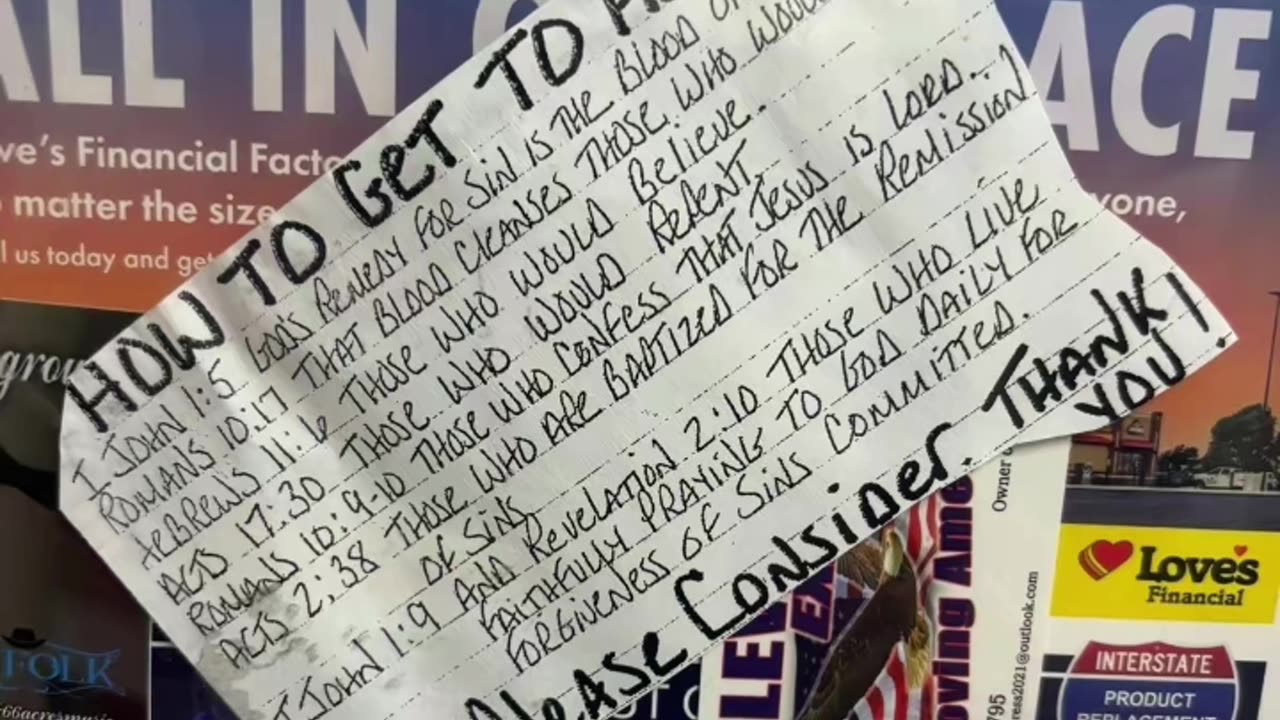 ALL IN
ACE
ve's Financial Facto
matter the size
l us today and get
yone,
HOW TO GET TO
I JOHN 1:5 GODS REMEDY FOR SIN IS THE BLOOD
ROMANS 10:17 THAT BLOOD CLEANSES THOSE WHO WOULD
HEBREWS 11:6 THOSE WHO WOULD BELIEVE.
ACTS 17:30 THOSE WHO WOULD REPENT.
ROMANS 10:9-10 THOSE WHO CONFESS THAT JESUS IS LORD.
ACTS 2:38 THOSE WHO ARE BAPTIZED FOR THE REMISSION
OF SINS
I JOHN 1:9 AND REVELATION 2:10 THOSE WHO LIVE
FAITHFULLY PRAYING TO GOD DAILY FOR
FORGIVENESS OF SINS COMMITTED.
PLEASE CONSIDER. THANK
YOU!
grow
FOLK
66acresmusic
LEV
EX
oving Ame
Owner
rea2021@outlook.com
795
Love's
Financial
INTERSTATE
PRODUCT
REPLACEMENT